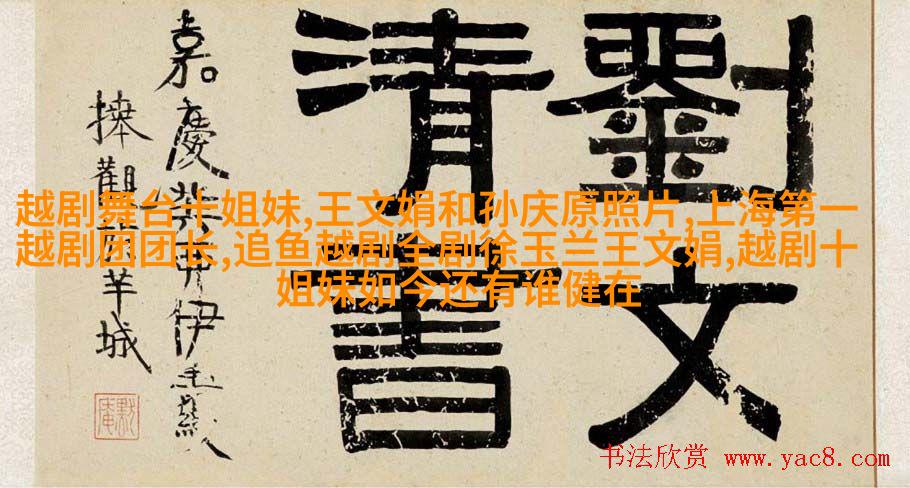 劉文
清書
嘉慶 伊秉綬
捧觀 羊城
越剧舞台十姐妹,王文娟和孙庆原照片,上海第一
越剧团团长,追鱼越剧全剧徐玉兰王文娟,越剧十
姐妹如今还有谁健在
书法欣赏 www.yac8.com